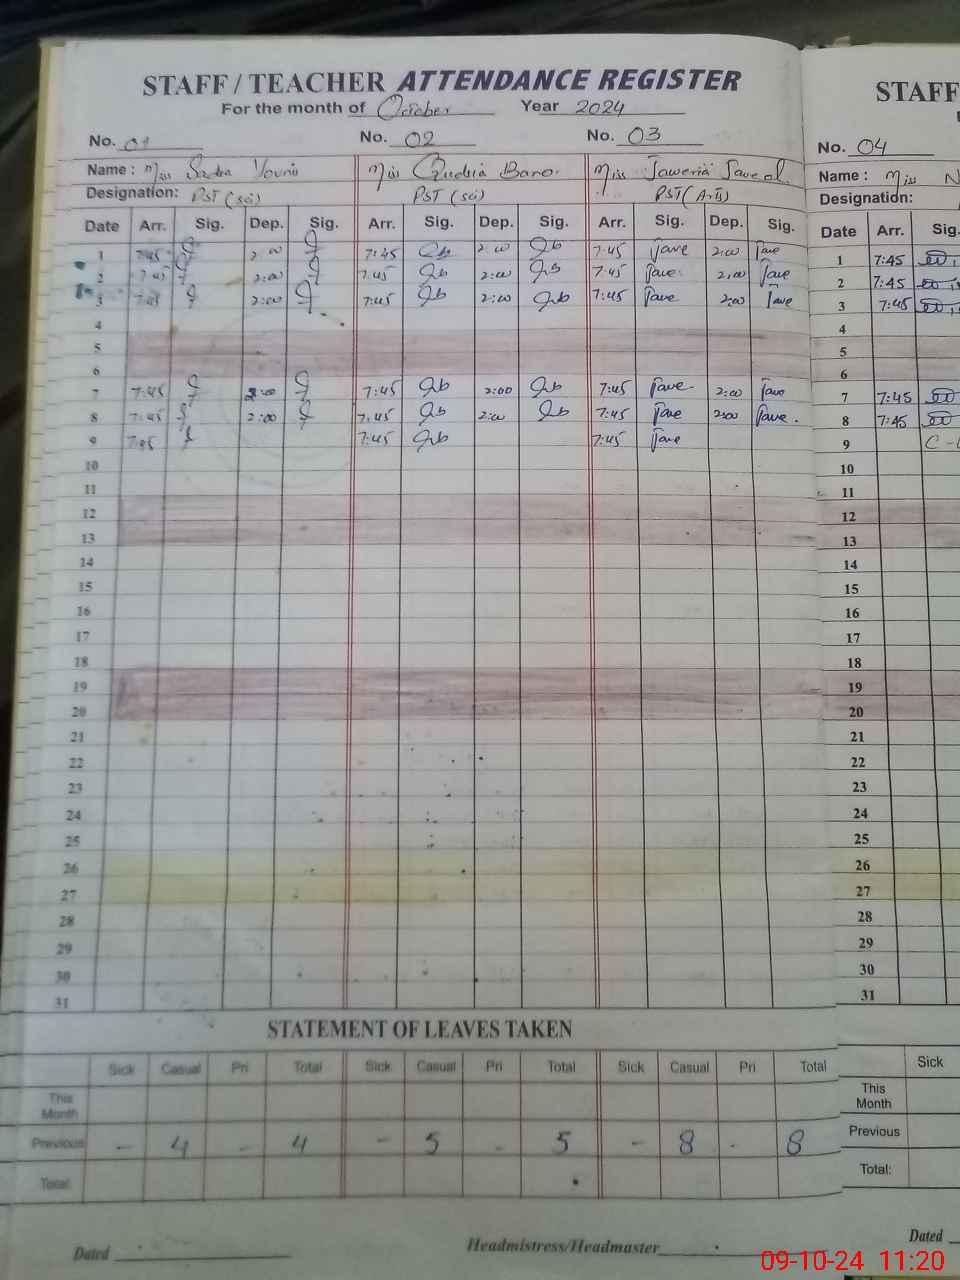 STAFF / TEACHER ATTENDANCE REGISTER
For the month of October Year 2024
No. 01 No. 02 No. 03
Name : Miss Sadia Miss Bano. Miss Jaweria
Designation: PST (sci) PST (sci) PST (Arts)
Date Arr. Sig. Dep. Sig. Arr. Sig. Dep. Sig. Arr. Sig. Dep. Sig.
1 7:45 2:00 7:45 Qb 2:00 Qb 7:45 Jave 2:00 Jave
2 7:45 2:00 7:45 Qb 2:00 Qb 7:45 Jave 2:00 Jave
3 7:45 2:00 7:45 Qb 2:00 Qb 7:45 Jave 2:00 Jave
4
5
6
7 7:45 2:00 7:45 Qb 2:00 Qb 7:45 Jave 2:00 Jave
8 7:45 2:00 7:45 Qb 2:00 Qb 7:45 Jave 2:00 Jave.
9 7:45 7:45 Qb 7:45 Jave
10
11
12
13
14
15
16
17
18
19
20
21
22
23
24
25
26
27
28
29
30
31
STATEMENT OF LEAVES TAKEN
Sick Casual Pri Total Sick Casual Pri Total Sick Casual Pri Total
This Month
Previous - 4 - 4 - 5 - 5 - 8 - 8
Total:
Dated Headmistress/Headmaster
STAFF
No. 04
Name : Miss
Designation:
Date Arr. Sig.
1 7:45
2 7:45
3 7:45
4
5
6
7 7:45
8 7:45
9
10
11
12
13
14
15
16
17
18
19
20
21
22
23
24
25
26
27
28
29
30
31
Sick
This Month
Previous
Total:
Dated
09-10-24 11:20